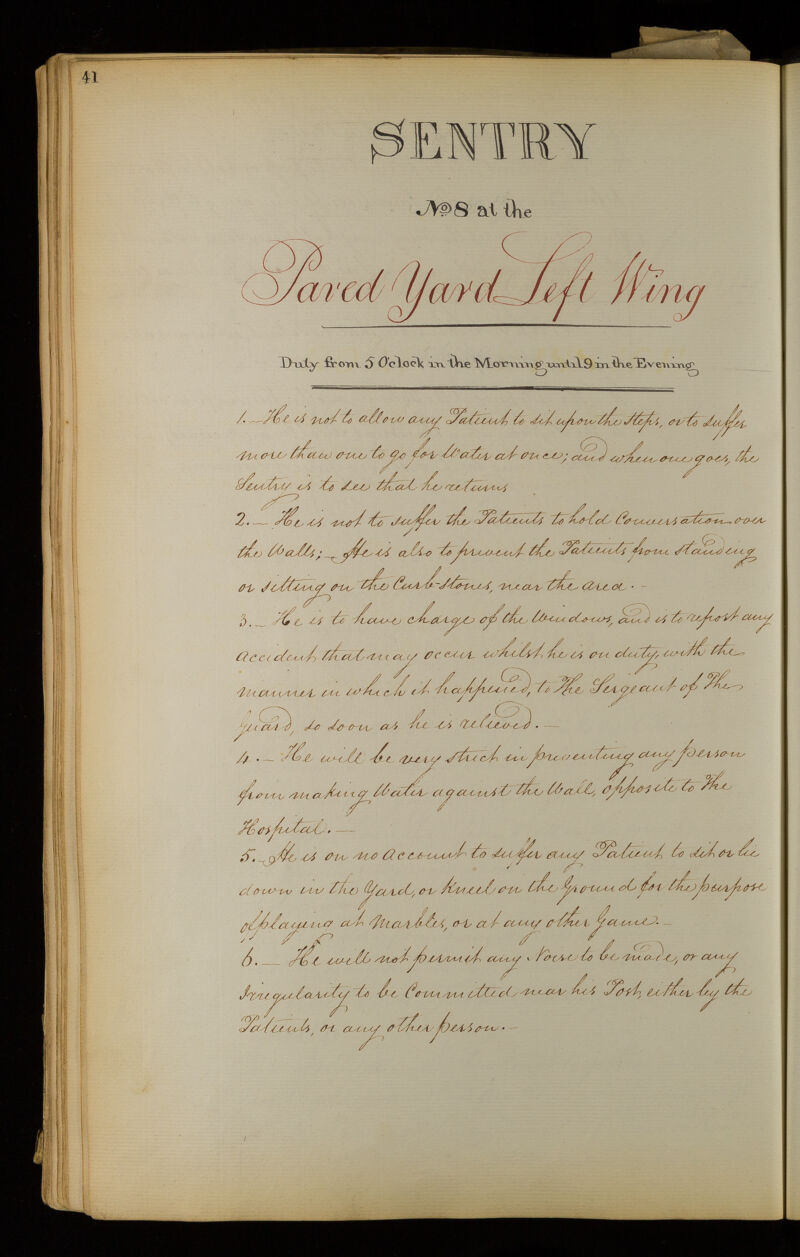 41
SENTRY
No 8 at the
Paved Yard Left Wing
Duty from 5 O'clock in the Morning until 9 in the Evening
1.— He is not to allow any Patient to sit upon the Steps, or to suffer
more than one to go for Water at once; and when one goes, the
Sentry is to see that he returns
2.— He is not to suffer the Patients to hold Conversation over
the Walls;— He is also to prevent the Patients from standing
or sitting on the Curb-Stones, near the Area.-
3.— He is to have charge of the Windows, and is to report any
accident that may occur whilst he is on duty, with the
manner in which it happened, to The Sergeant of The
Guard, so soon as he is relieved.—
4.— He will be very strict in preventing any person
from making Water against the Wall, opposite to The
Hospital.—
5.— He is on no Account to suffer any Patient to sit or lie
down in the Yard, or Kneel on the Ground for the purpose
of playing at Marbles, or at any other Game.—
6.— He will not permit any Noise to be made, or any
Irregularity to be Committed near his Post, either by the
Patients, or any other person.-